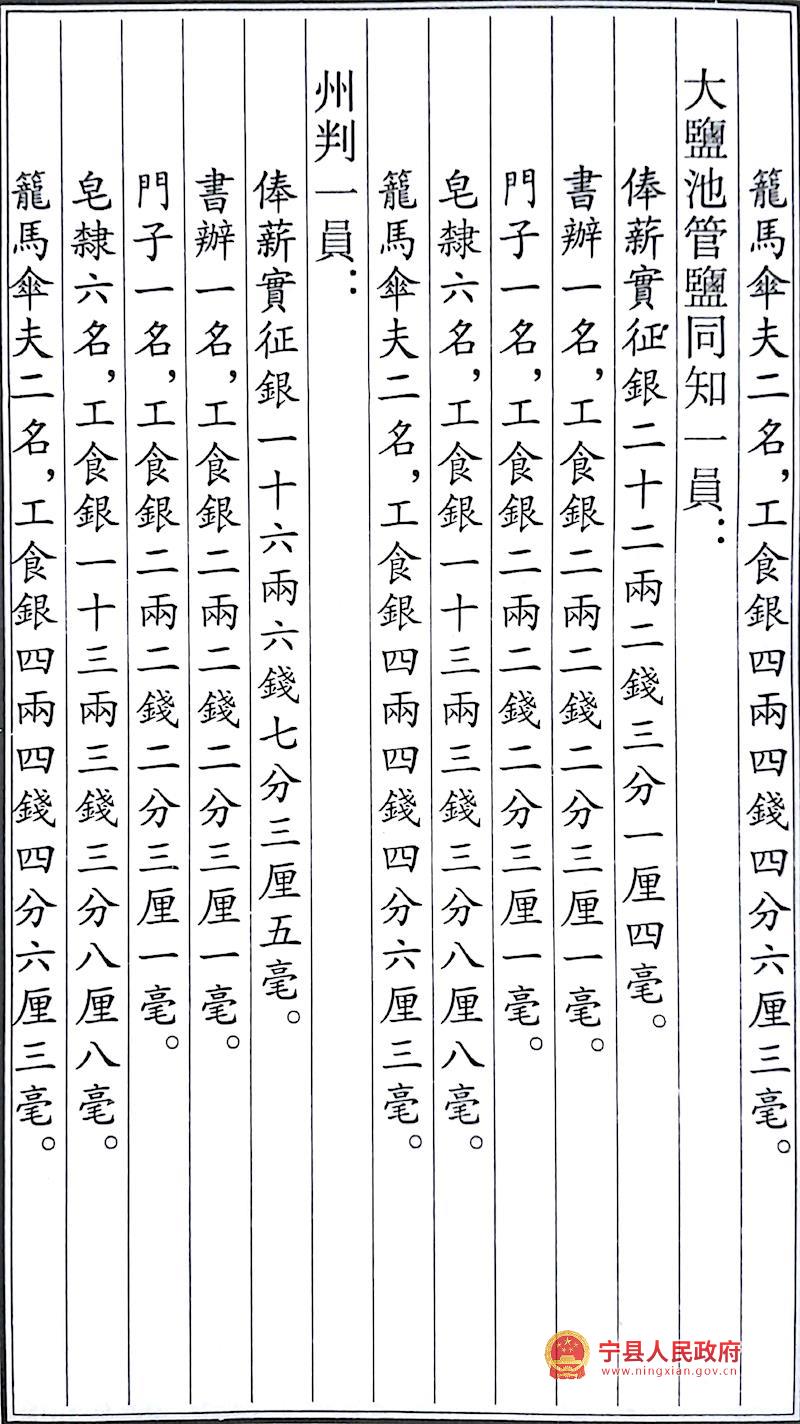 籠馬傘夫二名，工食銀四兩四錢四分六厘三毫。
大鹽池管鹽同知一員：
俸薪實征銀二十二兩二錢三分一厘四毫。
書辦一名，工食銀二兩二錢二分三厘一毫。
門子一名，工食銀二兩二錢二分三厘一毫。
皂隸六名，工食銀一十三兩三錢三分八厘八毫。
籠馬傘夫二名，工食銀四兩四錢四分六厘三毫。
州判一員：
俸薪實征銀一十六兩六錢七分三厘五毫。
書辦一名，工食銀二兩二錢二分三厘一毫。
門子一名，工食銀二兩二錢二分三厘一毫。
皂隸六名，工食銀一十三兩三錢三分八厘八毫。
籠馬傘夫二名，工食銀四兩四錢四分六厘三毫。
宁县人民政府
www.ningxian.gov.cn